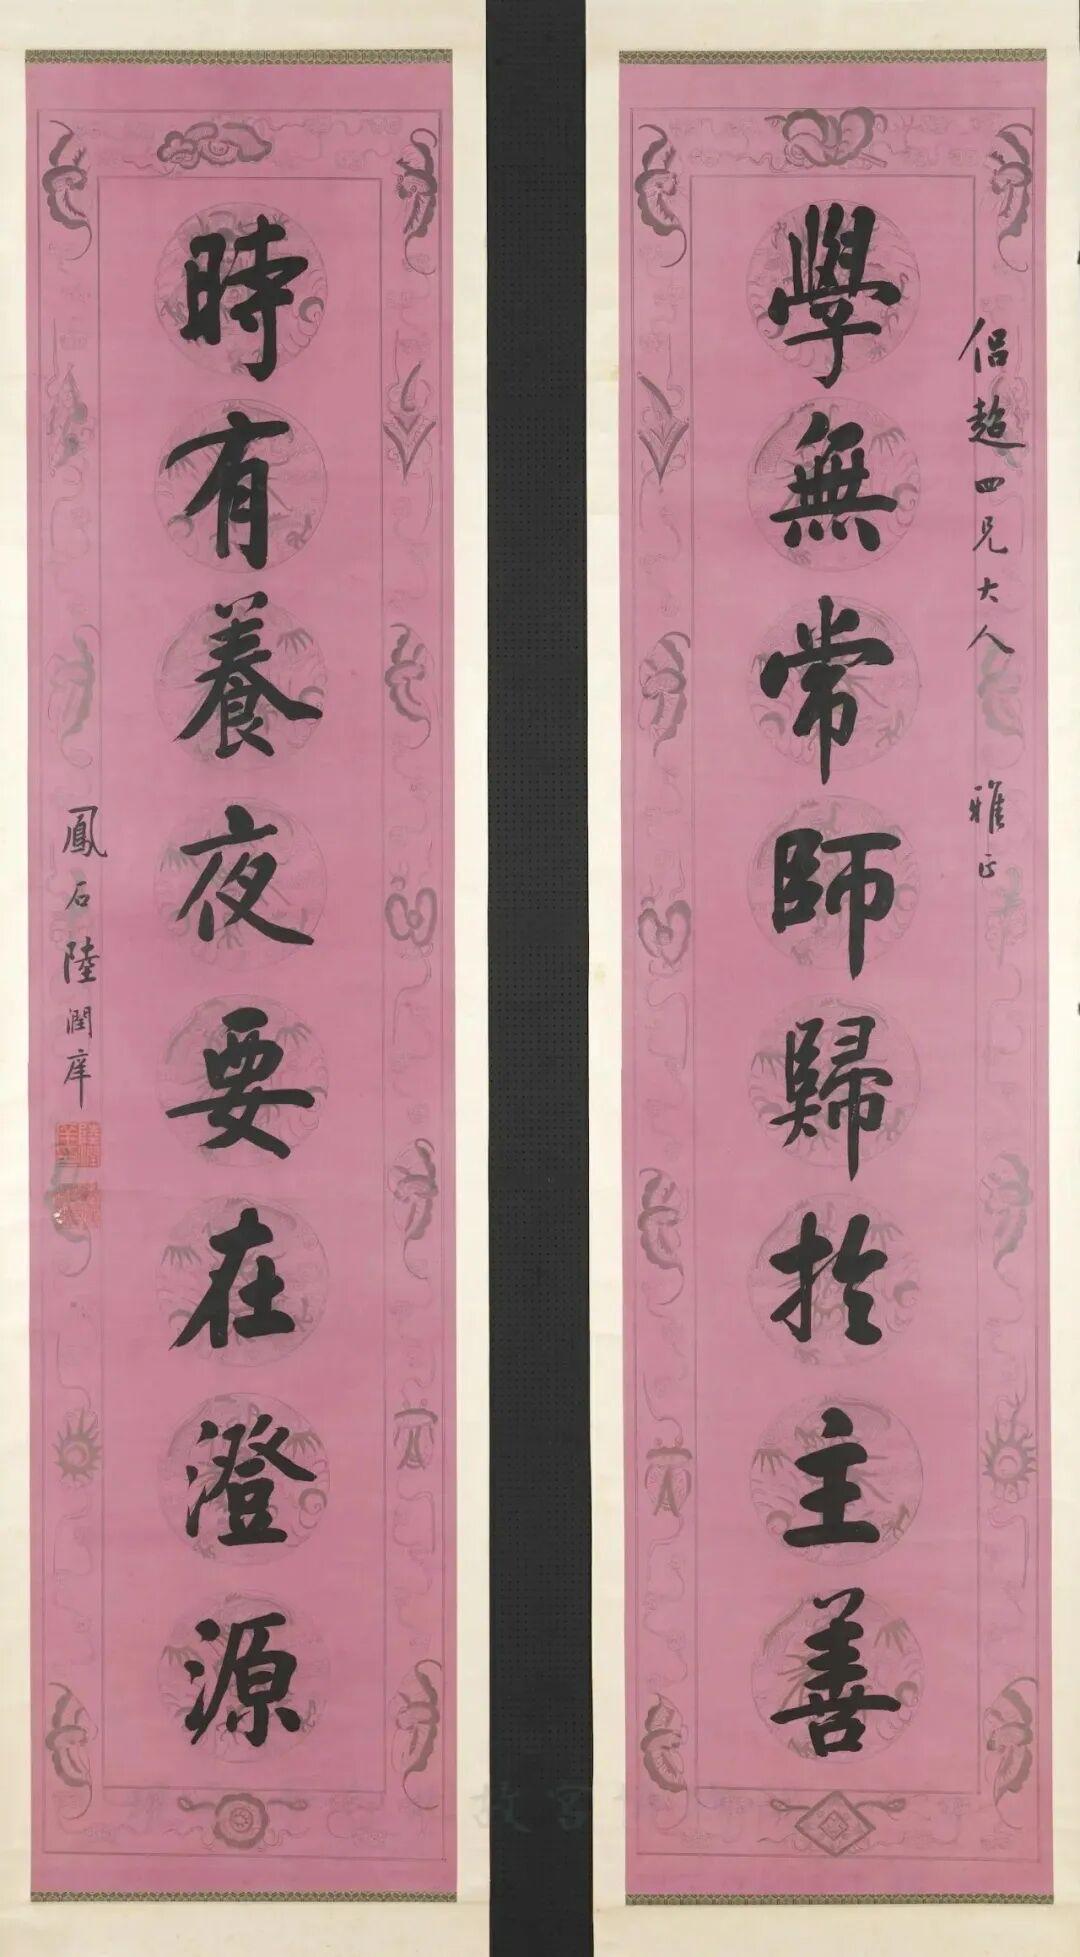 侣超四兄大人 雅正
學無常師歸於主善
時有養夜要在澄源
鳳石陸潤庠